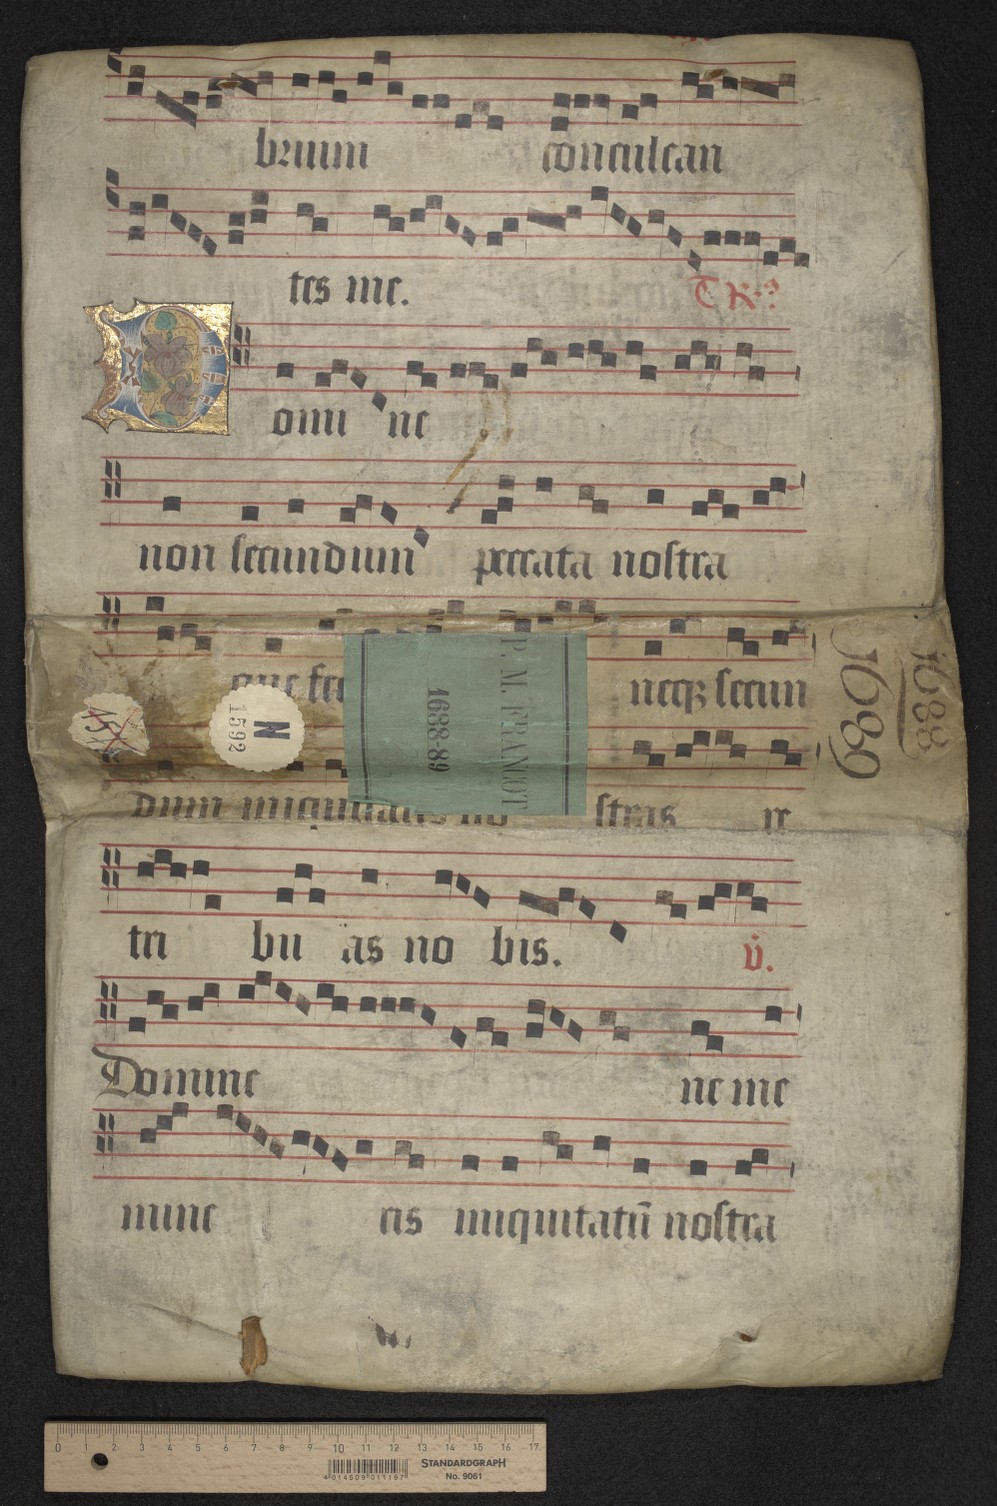 brium conculcan
tes me. Tr.
Domi ne
non secundum peccata nostra
que fec neqz secun
dum iniquitates no stras re
tri bu as no bis. v.
Domine ne me
mine ris iniquitatū nostra
1688
1689
15
N
1592
P. M. FRANCOT
1688-89
0 1 2 3 4 5 6 7 8 9 10 11 12 13 14 15 16 17
4 014509 011197
STANDARDGRAPH
No. 9061